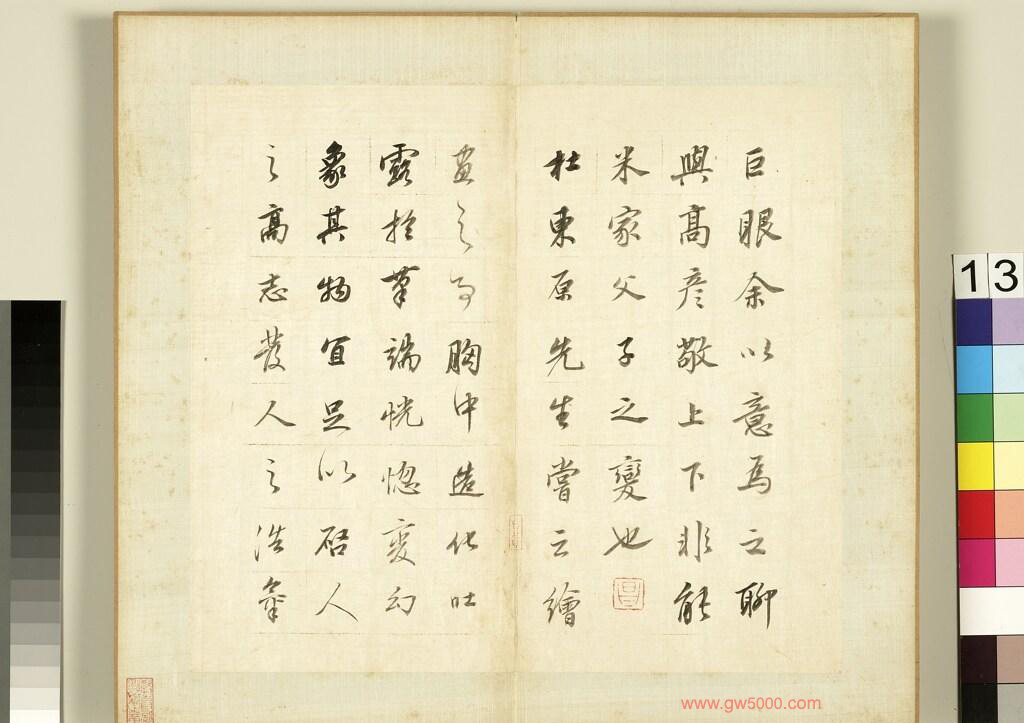 巨眼余以意爲之聊
與高彦敬上下非能
米家父子之變也
杜東原先生嘗云繪
畫之事胸中造化吐
露於筆端恍惚變幻
象其物宜足以啓人
之高志發人之浩氣
13
www.gw5000.com